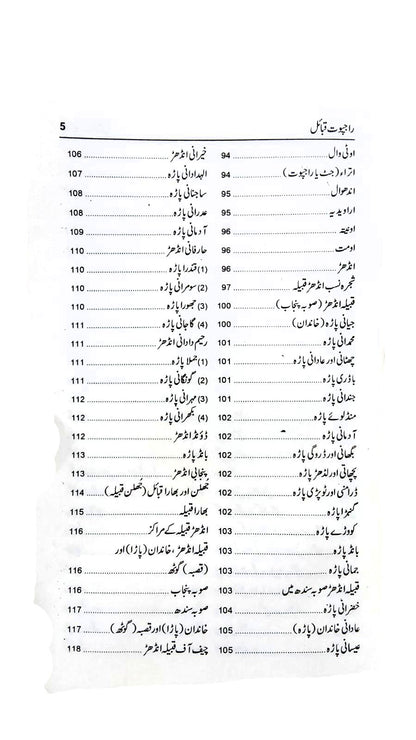 راجپوت قبائل 5
اوٹی وال 94
اتراء (جٹ یا راجپوت) 94
اندھوال 95
اراویدیہ 95
اونتہ 96
اومت 96
انڈھڑ 96
شجرہ نسب انڈھڑ قبیلہ 97
قبیلہ انڈھڑ (صوبہ پنجاب) 100
جیانی پاڑہ (خاندان) 100
محمدانی پاڑہ 101
چھٹانی اور عادانی پاڑہ 101
باذری پاڑہ 101
جندانی پاڑہ 101
منڈلوئے پاڑہ 102
آدمانی پاڑہ 102
بگھانی اور ڈروگی پاڑہ 102
پچھانی اور لدھڑ پاڑہ 102
ڈرامنی اور ٹوپڑی پاڑہ 102
کنیڑا پاڑہ 102
کووڑے پاڑہ 103
بانڈ پاڑہ 103
جمانی پاڑہ 103
قبیلہ انڈھڑ صوبہ سندھ میں 103
خضرانی پاڑہ 104
عادانی خاندان (پاڑہ) 105
عیسانی پاڑہ 105
خیرانی انڈھڑ 106
الہدادانی پاڑہ 107
ساجنانی پاڑہ 108
عدرانی پاڑہ 108
آدمانی پاڑہ 109
عارفانی انڈھڑ 110
(1) قندرا پاڑہ 110
(2) سومرانی پاڑہ 110
(3) جھورا پاڑہ 110
(4) گاجانی پاڑہ 111
رحیم دادانی انڈھڑ 111
(1) جملا پاڑہ 111
(2) گونگانی پاڑہ 111
(3) مہرانی پاڑہ 112
(4) بکھرانی پاڑہ 112
ڈونڈ انڈھڑ 112
بانڈ پاڑہ 113
پنجابی انڈھڑ 113
جُھلن اور بھارا قبائل (جُھلن قبیلہ) 114
بھارا قبیلہ 115
انڈھڑ قبیلہ کے مراکز 116
قبیلہ انڈھڑ، خاندان (پاڑا) اور
(قصبہ) گوٹھ 116
صوبہ پنجاب 116
صوبہ سندھ 117
خاندان (پاڑا) اور قصبہ (گوٹھ) 117
چیف آف قبیلہ انڈھڑ 118